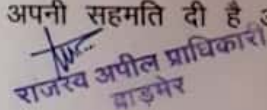 अपनी सहमति दी है
राजस्व अपील प्राधिकारी
बाड़मेर